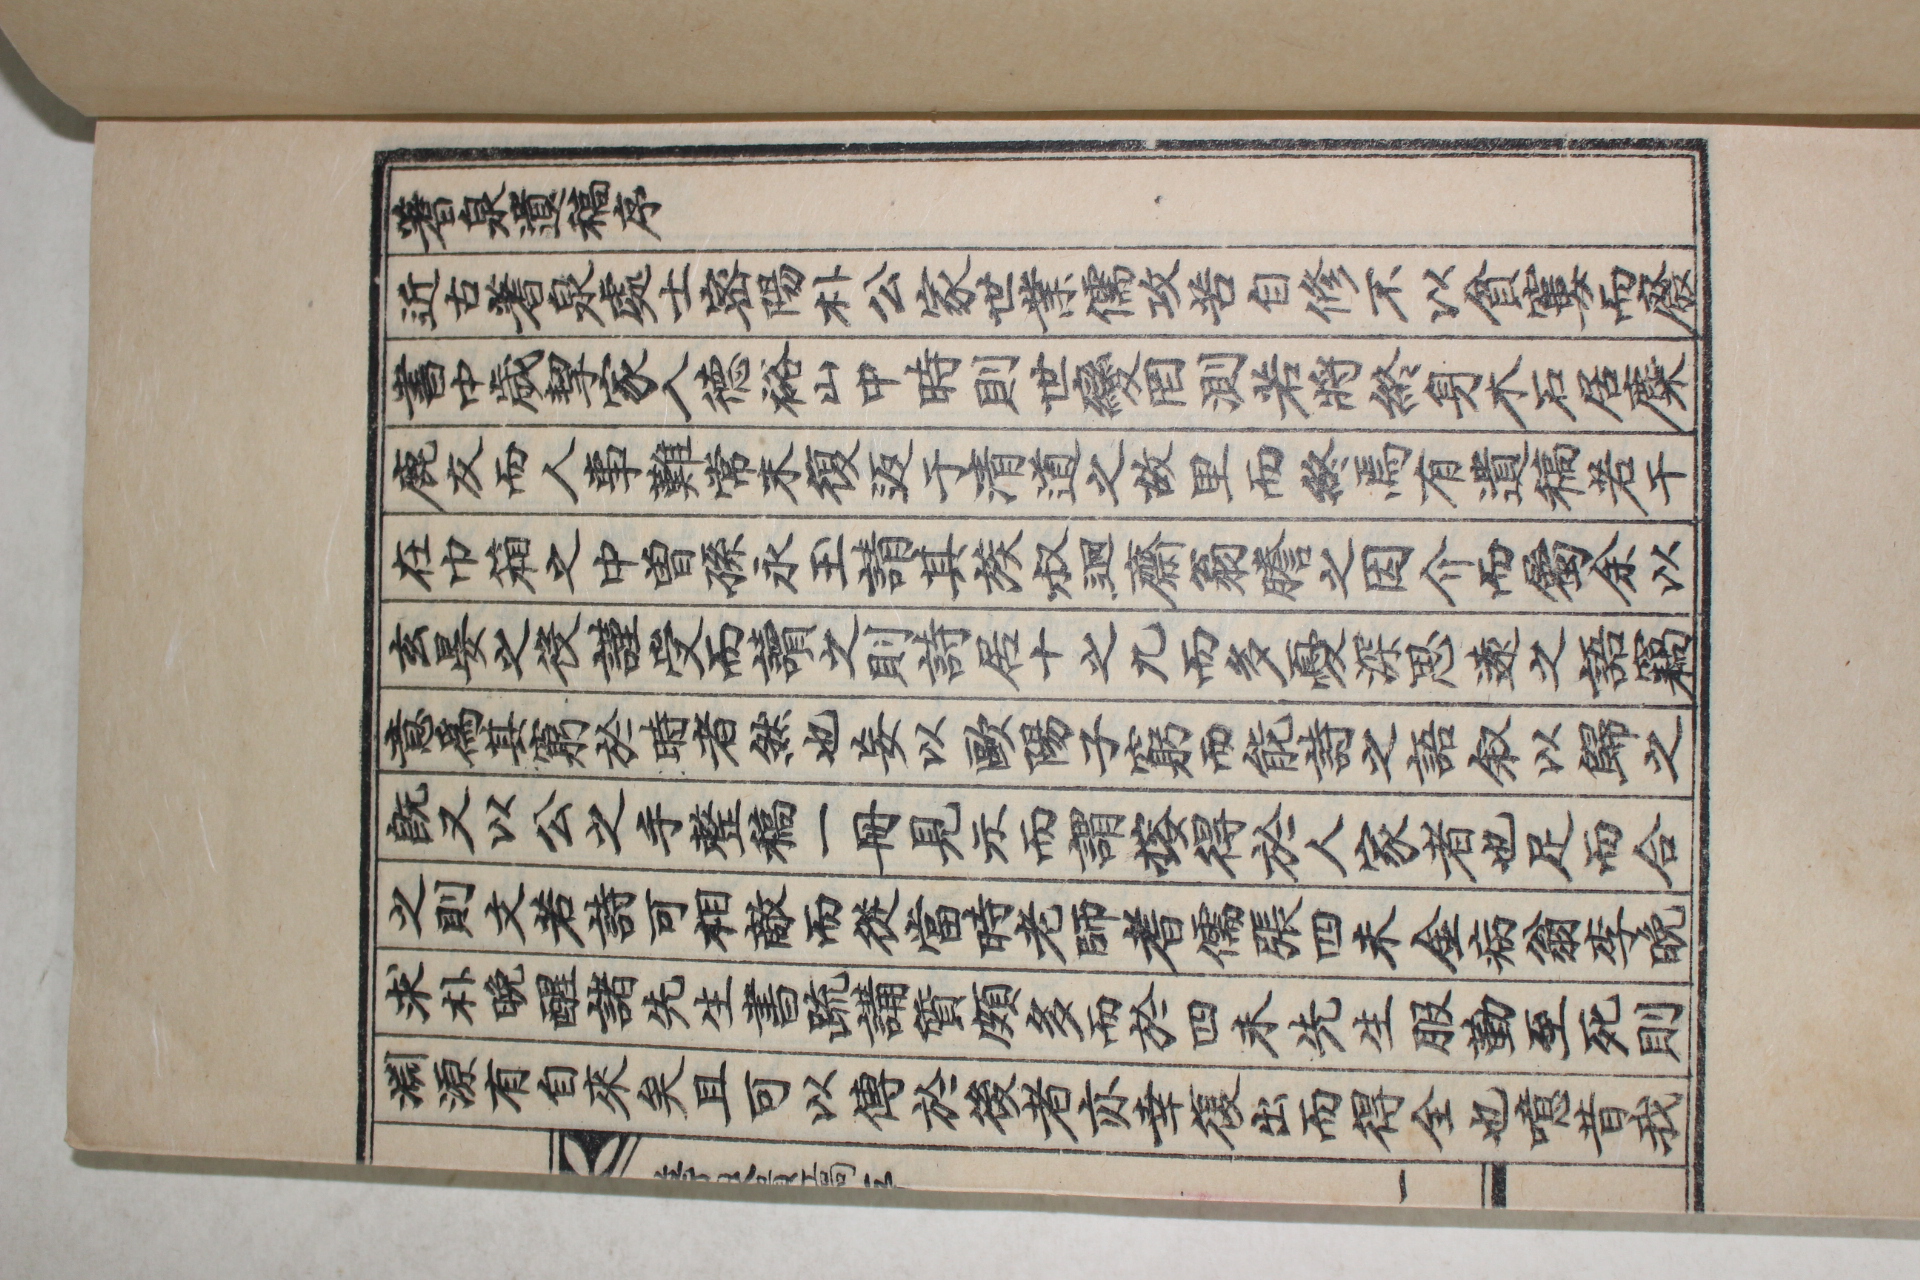 蓍泉遺稿序
近古蓍泉處士密陽朴公家世業儒攻苦自修不以貧窶而廢
書中歲挈家入德裕山中時則世變罔測若將終身木石居麋
鹿友而人事難常末復返于清道之故里而終焉有遺稿若干
在巾箱之中曽孫永玉請其族叔迴齋翁謄之因介而屬余以
玄晏之役謹受而讀之則詩居十之九而多憂深思遠之語竊
意爲其窮於時者然也妄以歐陽子窮而能詩之語叙以歸之
旣又以公之手整稿一冊見示而謂搜得於人家者也足而合
之則文若詩可相敵而從當時老師耆儒張四未金病翁李晩
求朴晩醒諸先生書䟽講質頗多而於四未先生服勤至死則
淵源有自來矣且可以傳於後者亦幸復出而得全也噫昔我
一